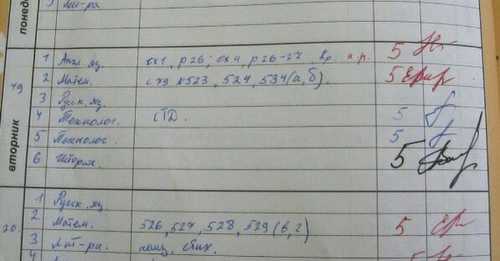 понед
Лит-ра
19
вторник
1 Англ. яз. ex1, p 26; ex 4, p 26-27 5
2 Матем. с 93 №523, 524, 534(а,б). 5
3 Русск. яз.
4 Технолог. 5
5 Технолог. 5
6 Истор. 5
20.
1 Русск. яз.
2 Матем. 526, 527, 528, 529 (в, г) 5
3 Лит-ра. стих. 5
4